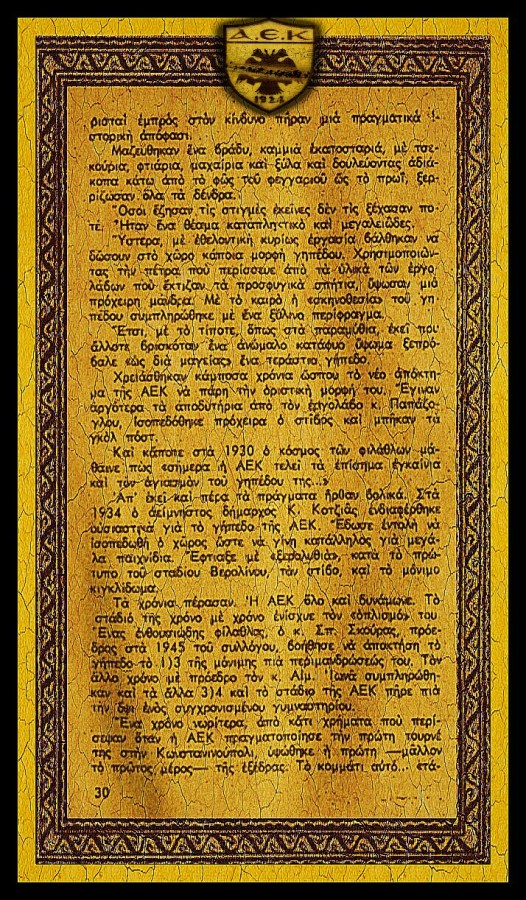 Α.Ε.Κ
1924
ρισταί ἐμπρὸς στὸν κίνδυνο πῆραν μιὰ πραγματικὰ ἱ-
στορικὴ ἀπόφασι.
Μαζεύθηκαν ἕνα βράδυ, καμμιὰ ἑκατοσταριά, μὲ τσε-
κούρια, φτιάρια, μαχαίρια καὶ ξύλα καὶ δουλεύοντας ἀδιά-
κοπα κάτω ἀπὸ τὸ φῶς τοῦ φεγγαριοῦ ὣς τὸ πρωΐ, ξερ-
ρίζωσαν ὅλα τὰ δένδρα.
Ὅσοι ἔζησαν τὶς στιγμὲς ἐκεῖνες δὲν τὶς ξέχασαν πο-
τέ. Ἦταν ἕνα θέαμα καταπληκτικὸ καὶ μεγαλειῶδες.
Ὕστερα, μὲ ἐθελοντικὴ κυρίως ἐργασία βάλθηκαν νὰ
δώσουν στὸ χῶρο κάποια μορφὴ γηπέδου. Χρησιμοποιῶν-
τας τὴν πέτρα ποὺ περίσσευε ἀπὸ τὰ ὑλικὰ τῶν ἐργο-
λάδων ποὺ ἔκτιζαν τὰ προσφυγικὰ σπήτια, ὕψωσαν μιὰ
πρόχειρη μάνδρα. Μὲ τὸ καιρὸ ἡ «σκηνοθεσία» τοῦ γη-
πέδου συμπληρώθηκε μὲ ἕνα ξύλινο περίφραγμα.
Ἔτσι, μὲ τὸ τίποτε, ὅπως στὰ παραμύθια, ἐκεῖ ποὺ
ἄλλοτε βρισκόταν ἕνα ἀνώμαλο κατάφυτο ὕψωμα ξεπρό-
βαλε «ὡς διὰ μαγείας» ἕνα τεράστιο γήπεδο.
Χρειάσθηκαν κάμποσα χρόνια ὥσπου τὸ νέο ἀπόκτη-
μα τῆς ΑΕΚ νὰ πάρη τὴν ὁριστικὴ μορφή του. Ἔγιναν
ἀργότερα τὰ ἀποδυτήρια ἀπὸ τὸν ἐργολάδο κ. Παπάζο-
γλου, ἰσοπεδόθηκε πρόχειρα ὁ στίβος καὶ μπῆκαν τὰ
γκὸλ πόστ.
Καὶ κάποτε στὰ 1930 ὁ κόσμος τῶν φιλάθλων μά-
θαινε πὼς «σήμερα ἡ ΑΕΚ τελεῖ τὰ ἐπίσημα ἐγκαίνια
καὶ τὸν ἁγιασμὸν τοῦ γηπέδου της...»
Ἀπ' ἐκεῖ καὶ πέρα τὰ πράγματα ἦρθαν βολικά. Στὰ
1934 ὁ ἀείμνηστος δήμαρχος Κ. Κοτζιᾶς ἐνδιαφέρθηκε
οὐσιαστικὰ γιὰ τὸ γήπεδο τῆς ΑΕΚ. Ἔδωσε ἐντολὴ νὰ
ἰσοπεδωθῆ ὁ χῶρος ὥστε νὰ γίνη κατάλληλος γιὰ μεγά-
λα παιχνίδια. Ἔφτιαξε μὲ κατὰ τὸ πρω-
τυπο τοῦ σταδίου Βερολίνου, τὸν στίβο, καὶ τὸ μόνιμο
κιγκλίδωμα.
Τὰ χρόνια πέρασαν. Ἡ ΑΕΚ ὅλο καὶ δυνάμωνε. Τὸ
στάδιό της χρόνο μὲ χρόνο ἐνίσχυε τὸν «ὁπλισμό» του.
Ἕνας ἐνθουσιώδης φίλαθλος, ὁ κ. Σπ. Σκούρας, πρόε-
δρος στὰ 1945 τοῦ συλλόγου, βοήθησε νὰ ἀποκτήση τὸ
γήπεδο τὸ 1)3 τῆς μόνιμης πιὰ περιμανδρώσεώς του. Τὸν
ἄλλο χρόνο μὲ πρόεδρο τὸν κ. Αἰμ. Ἰωνᾶ συμπληρώθη-
καν καὶ τὰ ἄλλα 3)4 καὶ τὸ στάδιο τῆς ΑΕΚ πῆρε πιὰ
τὴν ὄψι ἑνὸς συγχρονισμένου γυμναστηρίου.
Ἕνα χρόνο νωρίτερα, ἀπὸ κάτι χρήματα ποὺ περί-
σεψαν ὅταν ἡ ΑΕΚ πραγματοποίησε τὴν πρώτη τουρνέ
της στὴν Κωσταντινούπολι, ὑψώθηκε ἡ πρώτη —μᾶλλον
τὸ πρῶτος μέρος— τῆς ἐξέδρας. Τὸ κομμάτι αὐτό... στά-
30